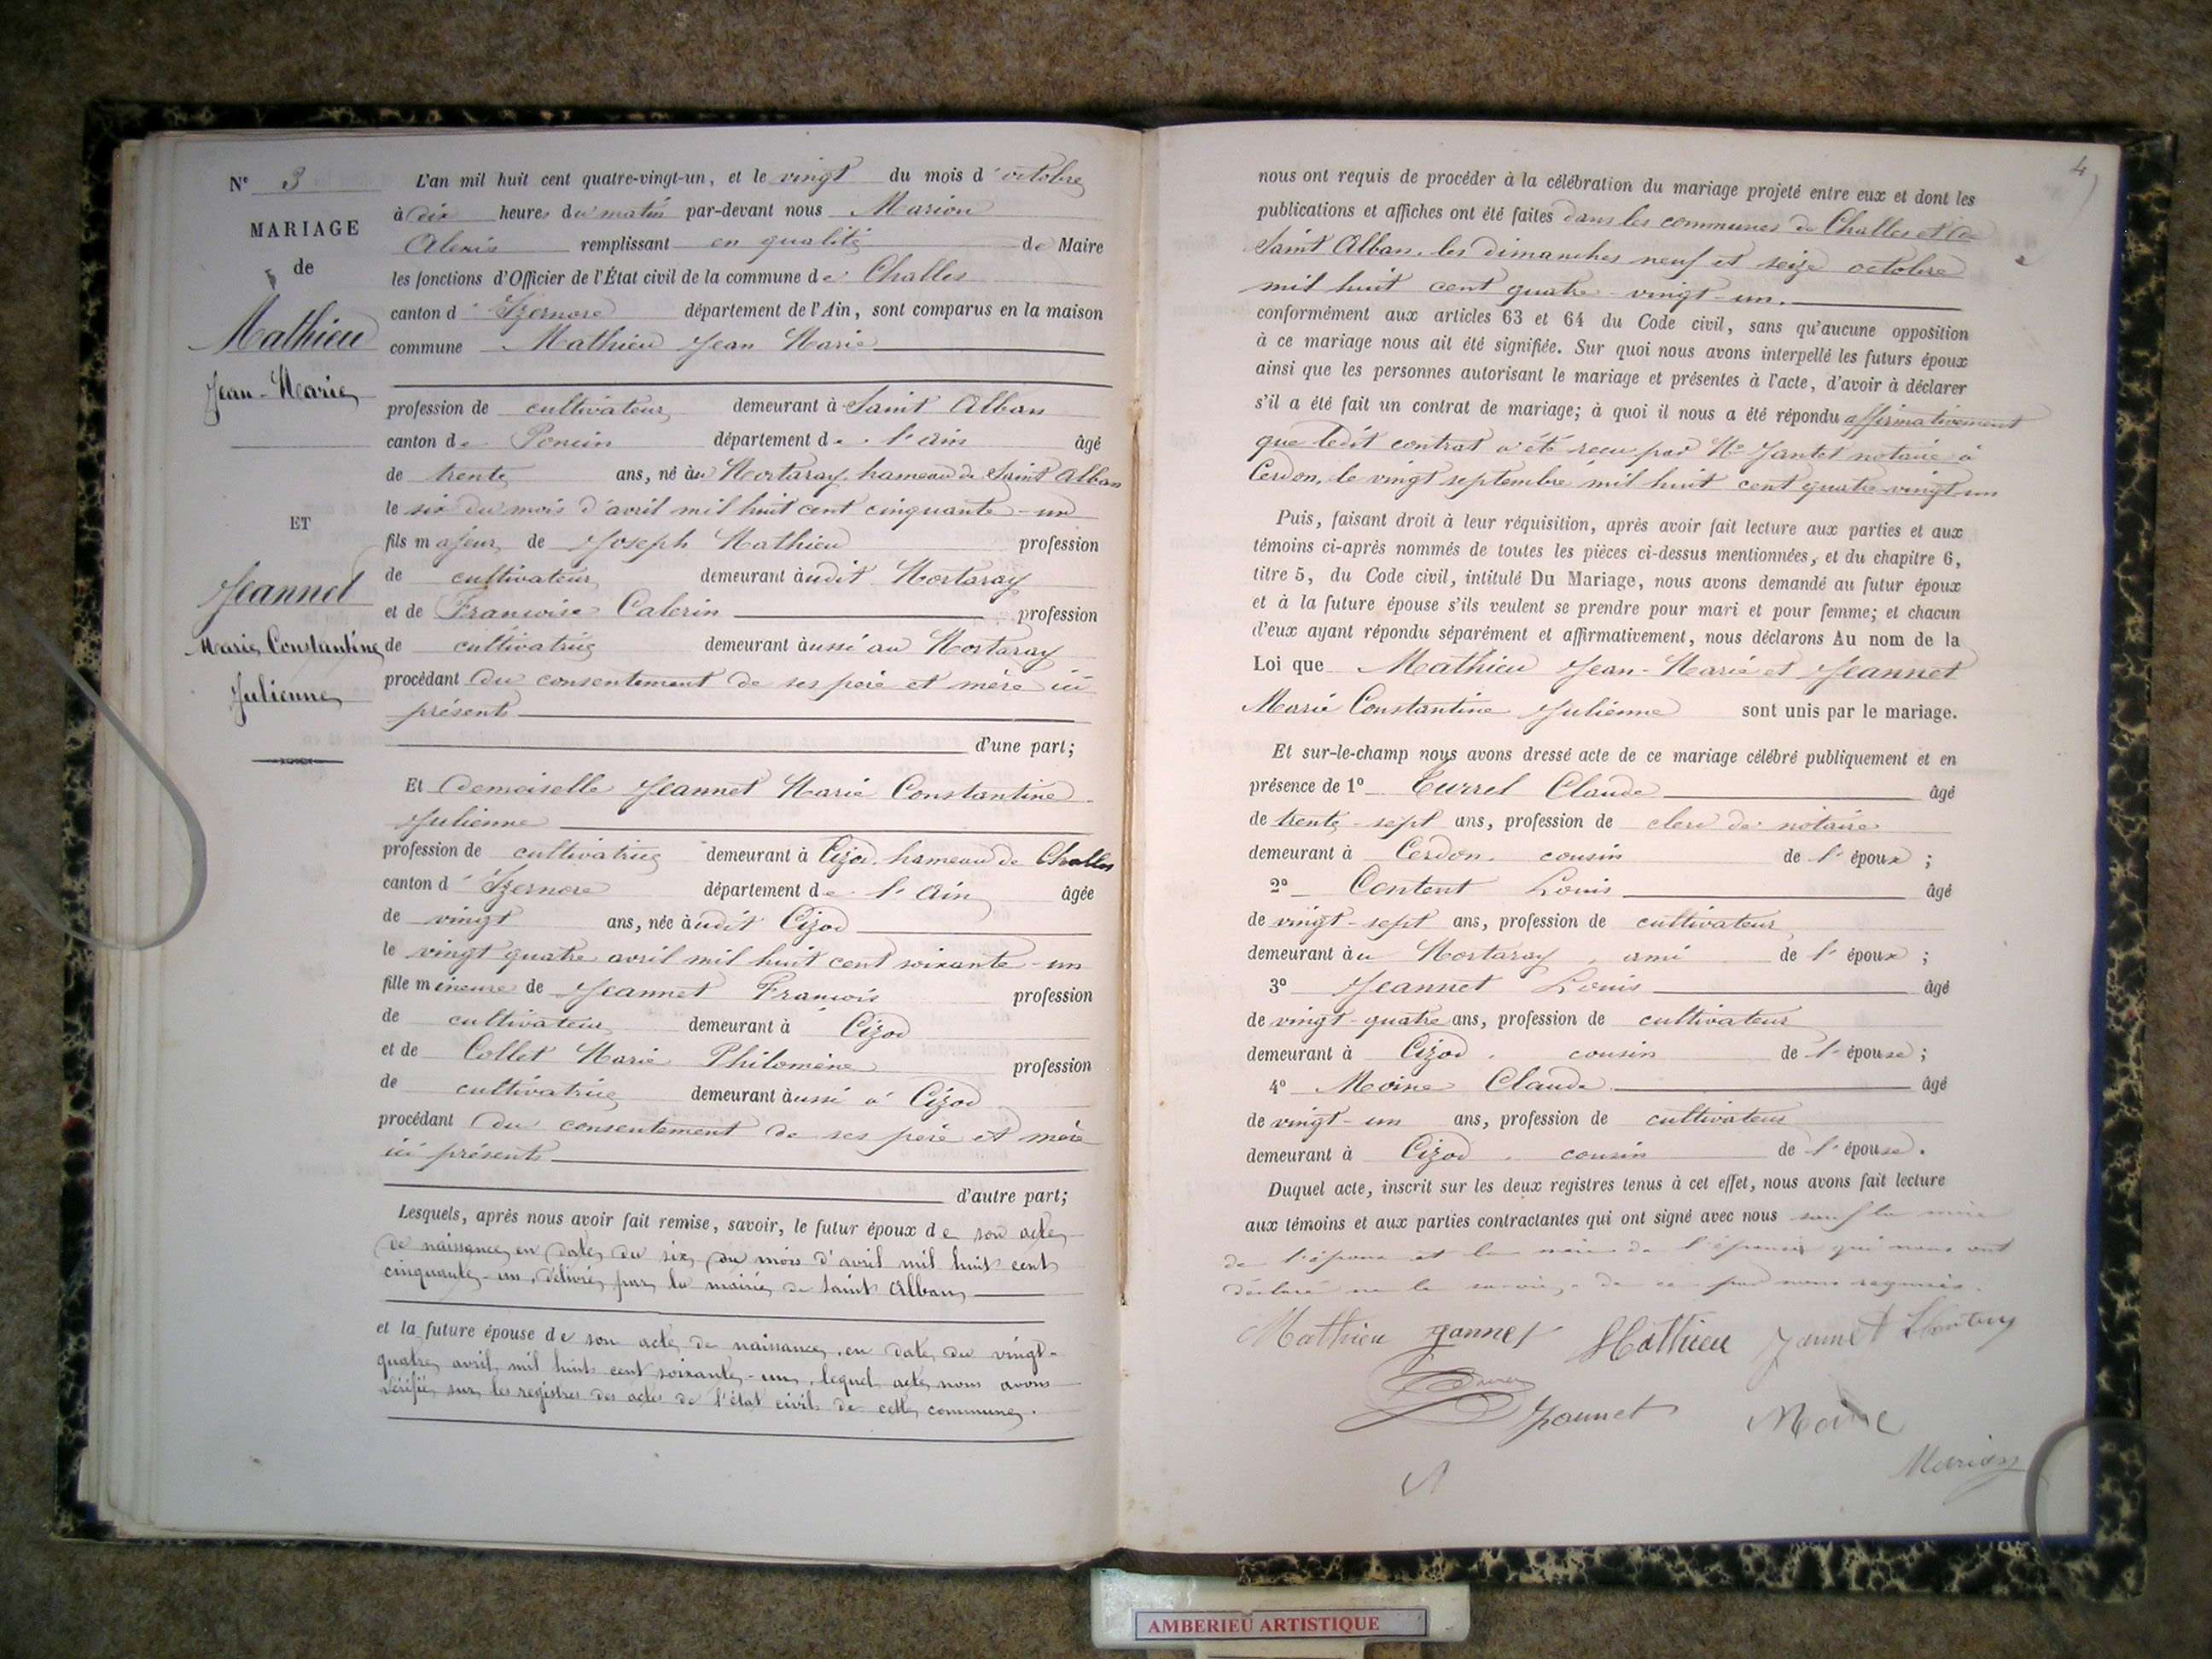 N° 3
MARIAGE
de
Mathieu
Jean-Marie
ET
Jeannet
Marie Constantine
Julienne
L'an mil huit cent quatre-vingt-un, et le vingt du mois d'octobre
à dix heures du matin par-devant nous Marion
Alexis remplissant en qualité de Maire
les fonctions d'Officier de l'État civil de la commune de Challes
canton d'Izernore département de l'Ain, sont comparus en la maison
commune Mathieu Jean Marie
profession de cultivateur demeurant à Saint Alban
canton de Poncin département de l'Ain âgé
de trente ans, né au Mortaray, hameau de Saint Alban
le six du mois d'avril mil huit cent cinquante-un
fils majeur de Joseph Mathieu profession
de cultivateur demeurant audit Mortaray
et de Francoise Calerin profession
de cultivatrice demeurant aussi au Mortaray
procédant du consentement de ses père et mère ici
présents
d'une part;
Et Demoiselle Jeannet Marie Constantine
Julienne
profession de cultivatrice demeurant à Cizod, hameau de Challes
canton d'Izernore département de l'Ain âgée
de vingt ans, née audit Cizod
le vingt quatre avril mil huit cent soixante-un
fille mineure de Jeannet François profession
de cultivateur demeurant à Cizod
et de Collet Marie Philomène profession
de cultivatrice demeurant aussi à Cizod
procédant du consentement de ses père et mère
ici présents
d'autre part;
Lesquels, après nous avoir fait remise, savoir, le futur époux de son acte
de naissance en date du six du mois d'avril mil huit cent
cinquante-un, délivré par la mairie de Saint Alban
et la future épouse de son acte de naissance, en date du vingt-
quatre avril mil huit cent soixante-un, lequel acte nous avons
vérifié sur les registres des actes de l'état civil de cette commune.
4
nous ont requis de procéder à la célébration du mariage projeté entre eux et dont les
publications et affiches ont été faites dans les communes de Challes et de
Saint Alban, les dimanches neuf et seize octobre
mil huit cent quatre-vingt-un.
conformément aux articles 63 et 64 du Code civil, sans qu'aucune opposition
à ce mariage nous ait été signifiée. Sur quoi nous avons interpellé les futurs époux
ainsi que les personnes autorisant le mariage et présentes à l'acte, d'avoir à déclarer
s'il a été fait un contrat de mariage; à quoi il nous a été répondu affirmativement
que ledit contrat a été reçu par Me Jantet notaire à
Cerdon, le vingt septembre mil huit cent quatre-vingt-un
Puis, faisant droit à leur réquisition, après avoir fait lecture aux parties et aux
témoins ci-après nommés de toutes les pièces ci-dessus mentionnées, et du chapitre 6,
titre 5, du Code civil, intitulé Du Mariage, nous avons demandé au futur époux
et à la future épouse s'ils veulent se prendre pour mari et pour femme; et chacun
d'eux ayant répondu séparément et affirmativement, nous déclarons Au nom de la
Loi que Mathieu Jean-Marie et Jeannet
Marie Constantine Julienne sont unis par le mariage.
Et sur-le-champ nous avons dressé acte de ce mariage célébré publiquement et en
présence de 1° Turrel Claude âgé
de trente-sept ans, profession de clerc de notaire
demeurant à Cerdon, cousin de l'époux;
2° Content Louis âgé
de vingt-sept ans, profession de cultivateur
demeurant au Mortaray, ami de l'époux;
3° Jeannet Louis âgé
de vingt-quatre ans, profession de cultivateur
demeurant à Cizod, cousin de l'épouse;
4° Moine Claude âgé
de vingt-un ans, profession de cultivateur
demeurant à Cizod, cousin de l'épouse.
Duquel acte, inscrit sur les deux registres tenus à cet effet, nous avons fait lecture
aux témoins et aux parties contractantes qui ont signé avec nous sauf la mère
de l'époux et la mère de l'épouse qui nous ont
déclaré ne le savoir, de ce par nous requises.
Mathieu Jannet Mathieu Jeannet
Jeannet Moine
Marion
AMBERIEU ARTISTIQUE